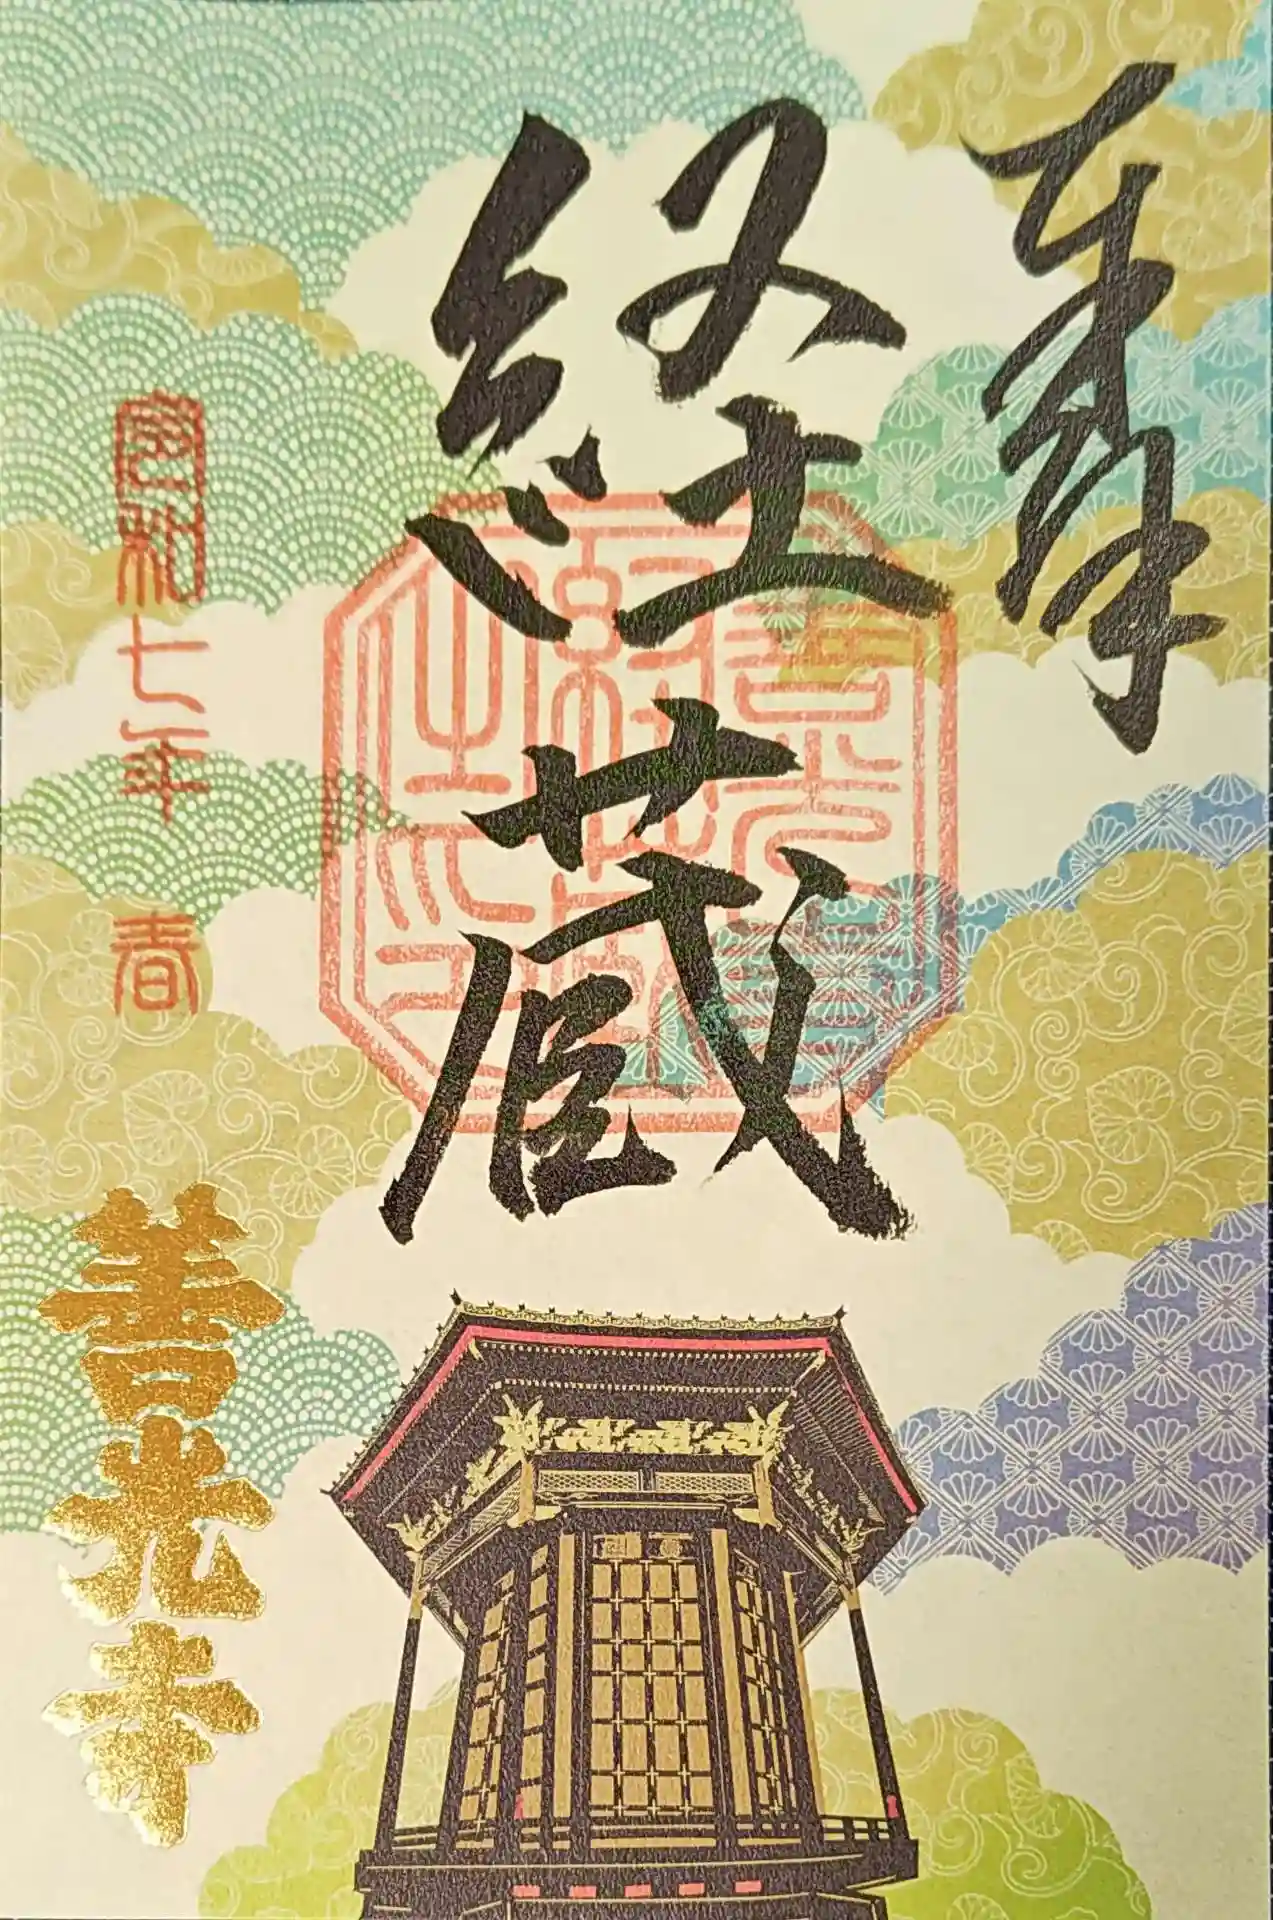 奉拝
経蔵
令和七年 春
善光寺